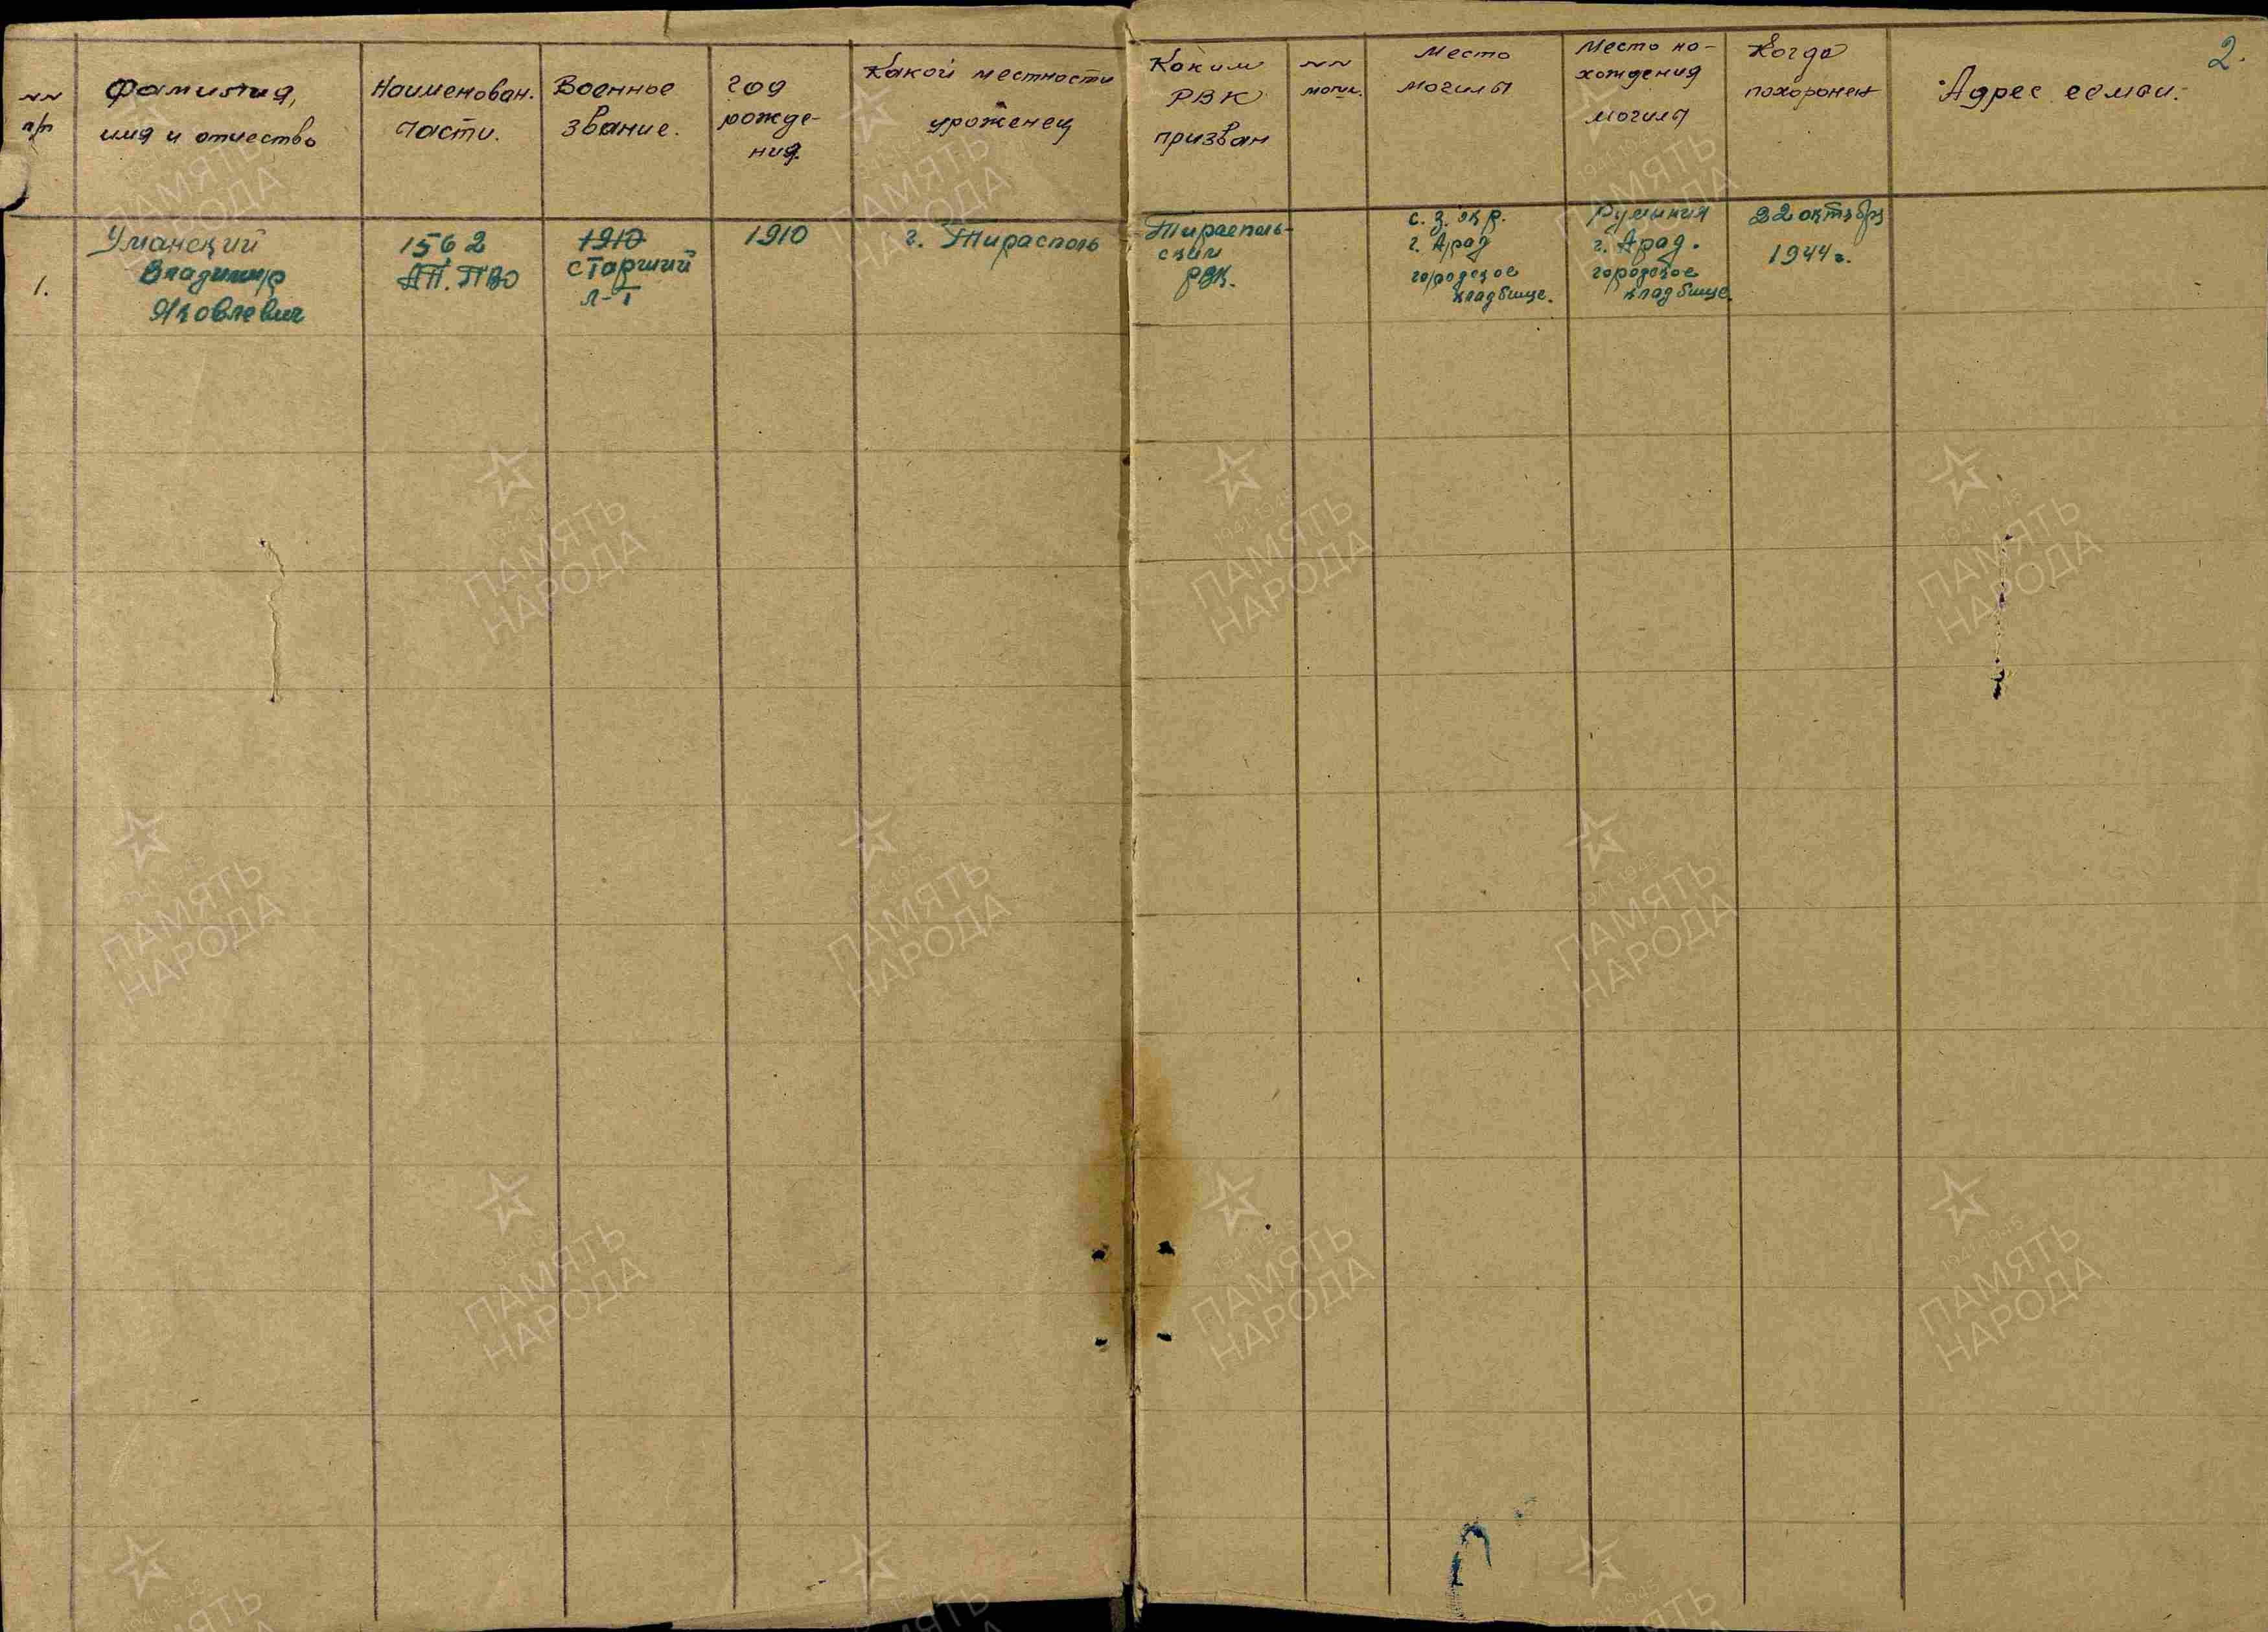 2.
~~
п/п
Фамилия,
имя и отчество
Наименован.
части.
Военное
звание.
год
рожде-
ния.
Какой местности
уроженец
Каким
РВК
призван
~~
могил.
Место
могилы
Место на-
хождения
могилы
Когда
похоронен
Адрес семьи.
1.
Уманский
Владимир
Яковлевич
1562
АП. ПВО
1910
старший
л-т
1910
г. Тирасполь
Тирасполь-
ским
РВК.
с. з. окр.
г. Арад
городское
кладбище.
Румыния
г. Арад.
городское
кладбище.
22 октября
1944 г.
1941-1945
ПАМЯТЬ
НАРОДА